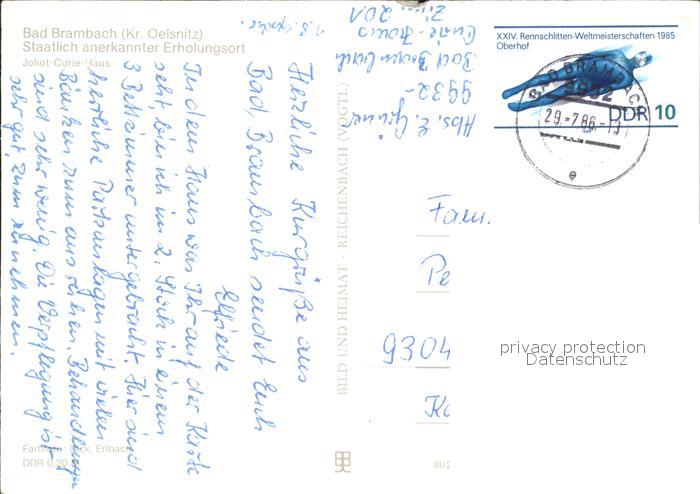 Bad Brambach (Kr. Oelsnitz)
Staatlich anerkannter Erholungsort
Joliot-Curie-Haus
Herzliche Kurgrüße aus
Bad Brambach sendet Euch
Elfriede
In dem Haus was Ihr auf der Karte
seht, bin ich im 2. Stock in einem
3 Bettzimmer untergebracht. Hier sind
herrliche Parkanlagen mit vielen
Bänken zum ausruhen. Behandlungen
sind sehr wenig. Die Verpflegung ist
sehr gut, zum zunehmen.
Farbfoto: Beck, Erlbach
DDR 0,20
BILD UND HEIMAT · REICHENBACH (VOGTL)
III/2
Abs. E. Grüner
9932-
Bad Brambach
Curie-Haus
Zim. 201
XXIV. Rennschlitten-Weltmeisterschaften 1985
Oberhof
DDR 10
BAD BRAMBACH
9932
29.-7.86.-19
e
Fam.
Pe
9304
privacy protection
Datenschutz